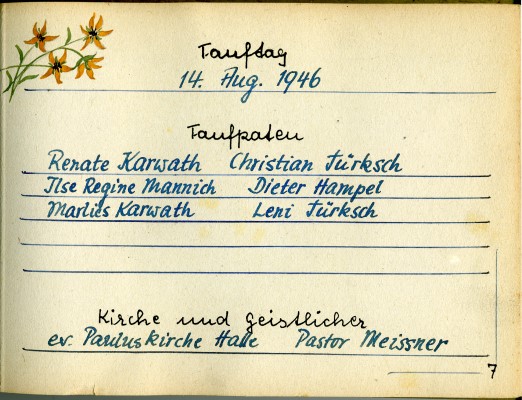 Tauftag
14. Aug. 1946
Taufpaten
Renate Karwath Christian Türksch
Ilse Regine Mannich Dieter Hampel
Marlies Karwath Leni Türksch
Kirche und Geistlicher
ev. Pauluskirche Halle Pastor Meissner
7